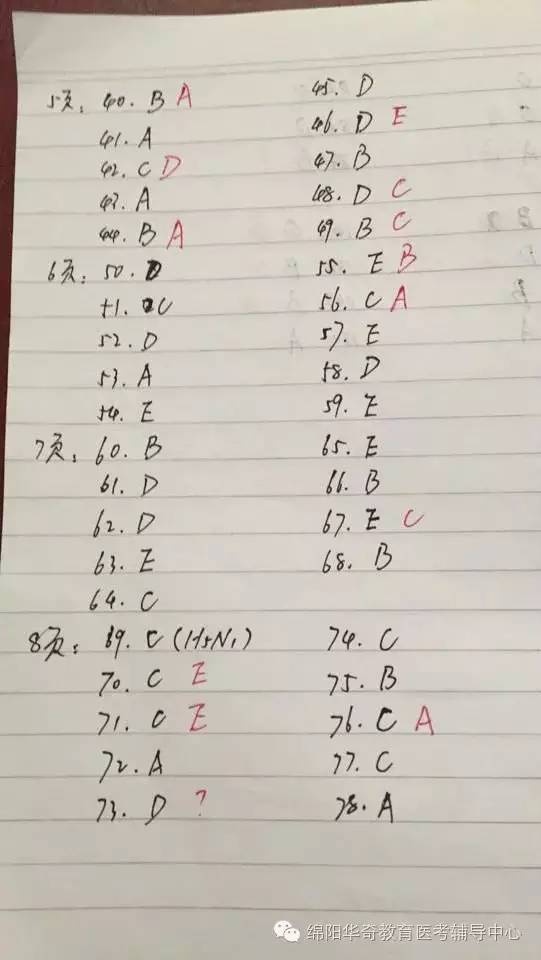 5页: 40. B A 45. D
41. A 46. D E
42. C D 47. B
43. A 48. D C
44. B A 49. B C
6页: 50. D 55. E B
51. C 56. C A
52. D 57. E
53. A 58. D
54. E 59. E
7页: 60. B 65. E
61. D 66. B
62. D 67. E C
63. E 68. B
64. C
8页: 69. C (H5N1) 74. C
70. C E 75. B
71. C E 76. C A
72. A 77. C
73. D ? 78. A
绵阳华奇教育医考辅导中心